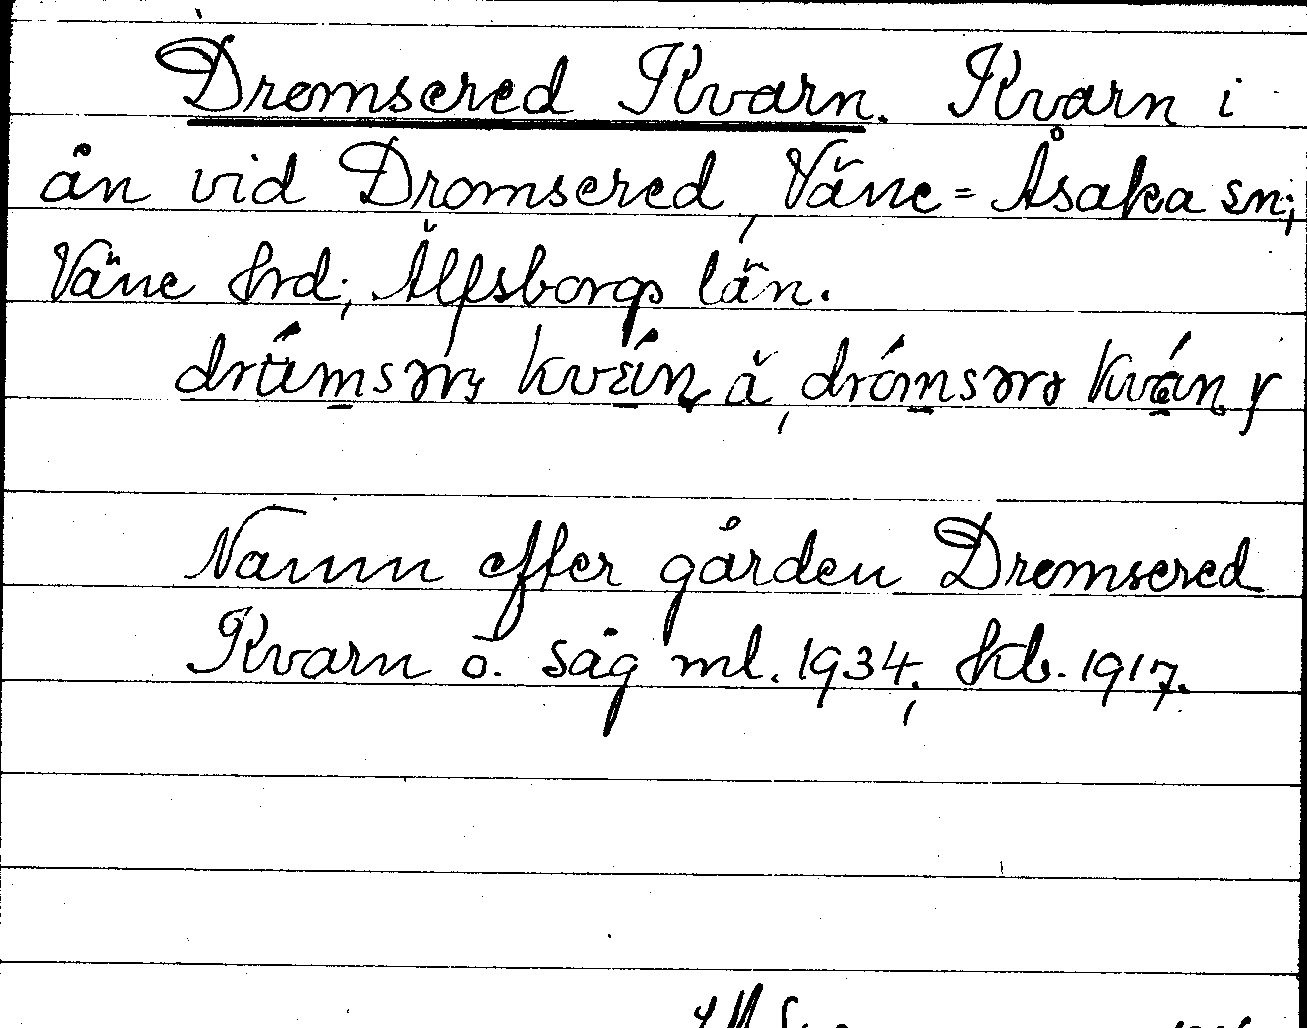 Dromsered Kvarn. Kvarn i
ån vid Dromsered, Väne=Åsaka sn;
Väne hrd; Älfsborgs län.
kvǽn ä,
Namn efter gården Dromsered
Kvarn o. såg ml. 1934; hb. 1917.